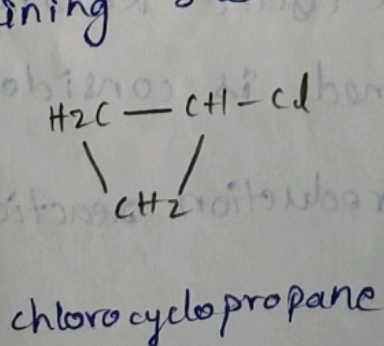 ining
H2C — CH - Cl
CH2
chlorocyclopropane